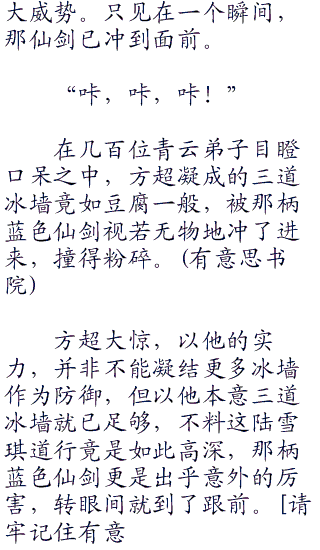 大威势。只见在一个瞬间，
那仙剑已冲到面前。
“咔，咔，咔！”
在几百位青云弟子目瞪
口呆之中，方超凝成的三道
冰墙竟如豆腐一般，被那柄
蓝色仙剑视若无物地冲了进
来，撞得粉碎。(有意思书
院)
方超大惊，以他的实
力，并非不能凝结更多冰墙
作为防御，但以他本意三道
冰墙就已足够，不料这陆雪
琪道行竟是如此高深，那柄
蓝色仙剑更是出乎意外的厉
害，转眼间就到了跟前。[请
牢记住有意